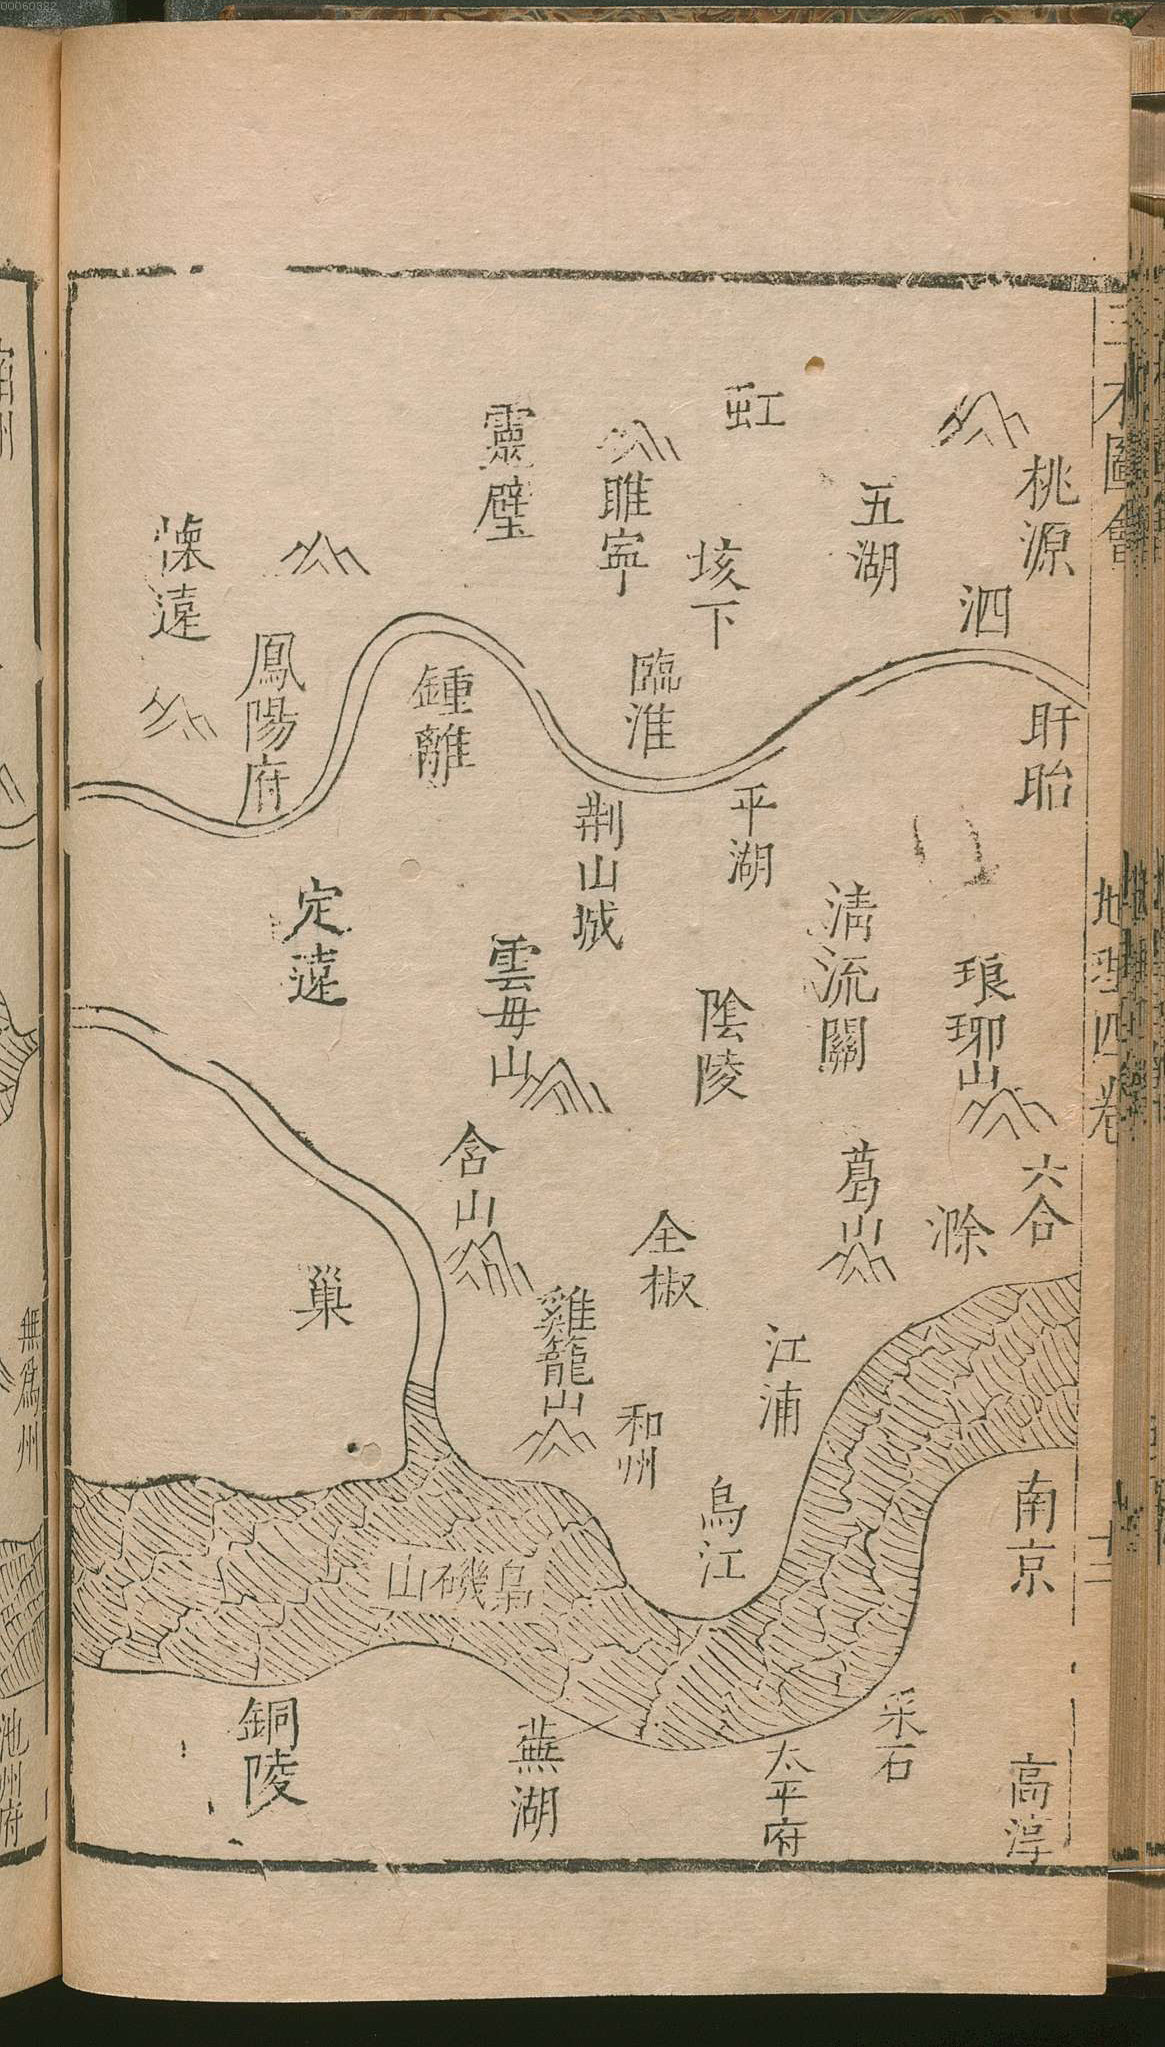 00060382
三才圖會
地理四卷
十二
桃源
泗
盱眙
琅琊山
六合
滁
南京
高淳
五湖
清流關
葛山
采石
虹
垓下
平湖
陰陵
江浦
烏江
太平府
睢寧
臨淮
荆山城
全椒
和州
靈璧
鍾離
雲母山
含山
雞籠山
山磯梟
蕪湖
鳳陽府
定遠
巢
銅陵
懷遠
宿州
無爲州
池州府